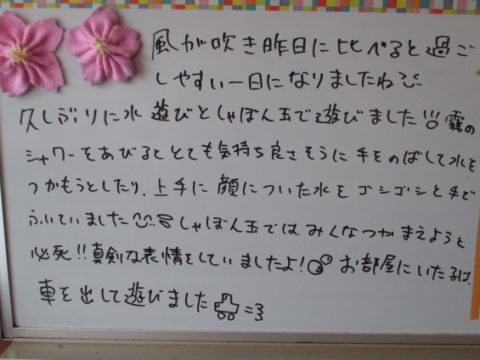 風が吹き昨日に比べると過ご
しやすい一日になりましたね
久しぶりに水遊びとしゃぼん玉で遊びました!!! 霧の
シャワーをあびるととても気持ち良さそうに手をのばして水を
つかもうとしたり、上手に顔についた水をゴシゴシと手で
ふいていました しゃぼん玉では、みんなつかまえようと
必死!!真剣な表情をしていましたよ! お部屋にいた
車を出して遊びました =3